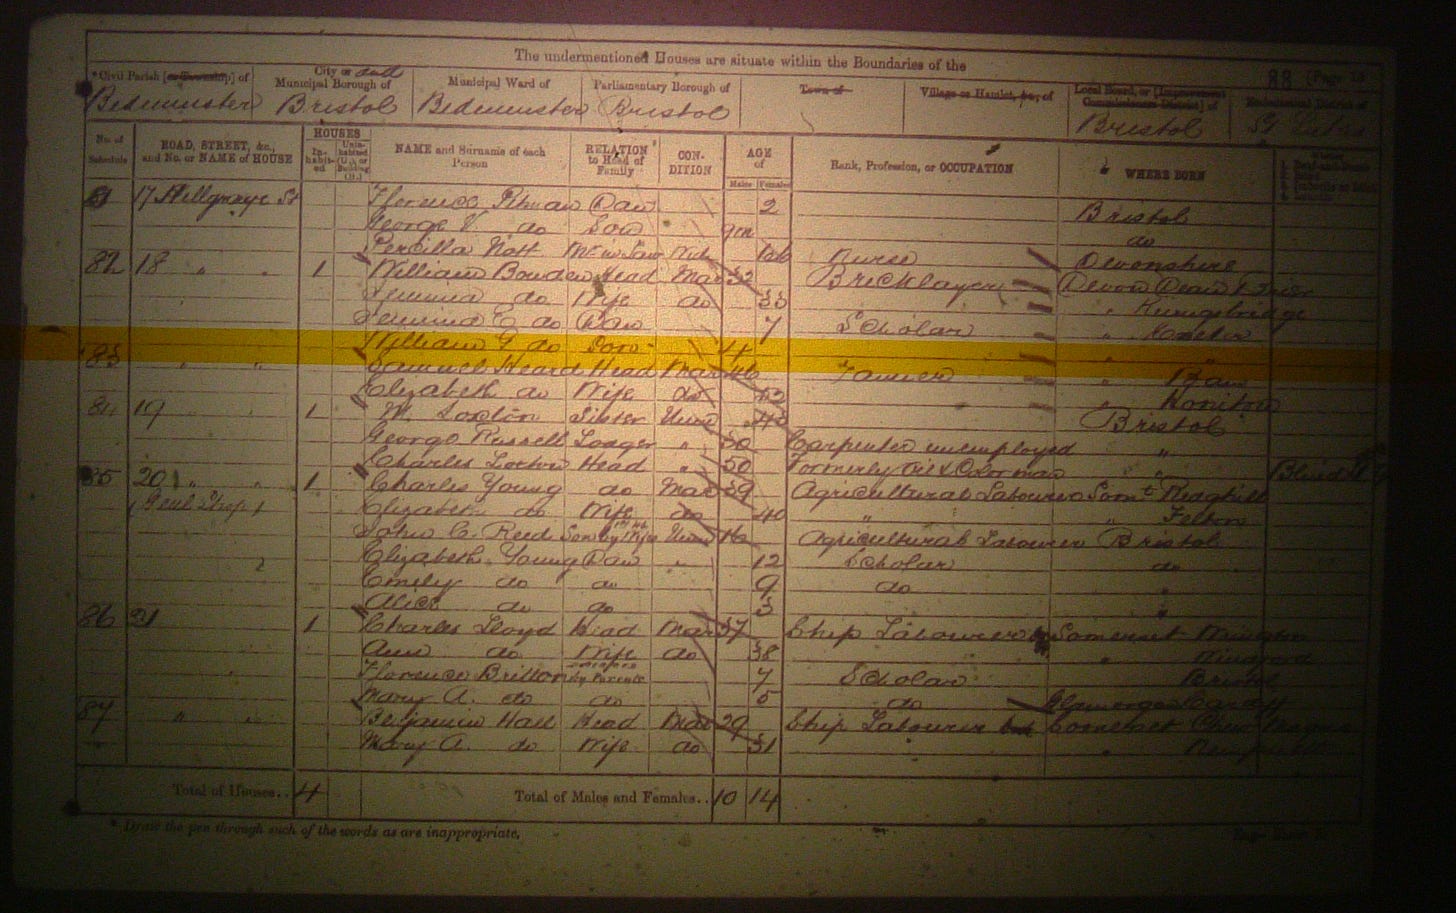 The undermentioned Houses are situate within the Boundaries of the
88 [Page 13
*Civil Parish [or Township] of City or Municipal Borough of Municipal Ward of Parliamentary Borough of Town of Village or Hamlet, &c., of Local Board, or [Improvement Commissioners District] of Ecclesiastical District of
Bedminster Bristol Bedminster Bristol Bristol St Lukes
No. of Schedule ROAD, STREET, &c., and No. or NAME of HOUSE HOUSES In-habit-ed Unin-habited (U.), or Building (B.) NAME and Surname of each Person RELATION to Head of Family CON-DITION AGE of Males Females Rank, Profession, or OCCUPATION WHERE BORN
81 17 St Florence Daw 2 Bristol
George V. do Son 9m do
Percilla Nott M in Law Wid 66 Nurse Devonshire
82 18 " " 1 William Bowden Head Mar 32 Bricklayer Devon
Jemima do Wife do 33 " Kingsbridge
Jemima E do Daw 7 Scholar " Exeter
William G do Son 4 " "
83 " " Samuel Heard Head Mar 46 "
Elizabeth do Wife do 52 " Honiton
84 19 1 M. Loxton Sister Unm 43 Bristol
George Russell Lodger " 50 Carpenter unemployed "
Charles Head " 50 Formerly Oil & Colorman " Blind
85 20 " " 1 Charles Young do Mar 39 Agricultural Labourer Somt Redghill
Elizabeth do Wife do 40 " " Felton
John C. Reed Son by Wife Unm 16 Agricultural Labourer Bristol
Elizabeth Young Daw " 12 Scholar do
Emily do do 9 do "
Alice do do 3 "
86 21 1 Charles Lloyd Head Mar 37 Ship Labourer Somerset Wrington
Ann do Wife do 38 " Winford
Florence Britton by Parents 7 Scholar Bristol
Mary A. do do 5 do Glamorgan Cardiff
87 " " Benjamin Hall Head Mar 29 Ship Labourer Somerset Chew Magna
Mary A. do Wife do 31 "
Total of Houses.. 4 Total of Males and Females.. 10 14
* Draw the pen through such of the words as are inappropriate.